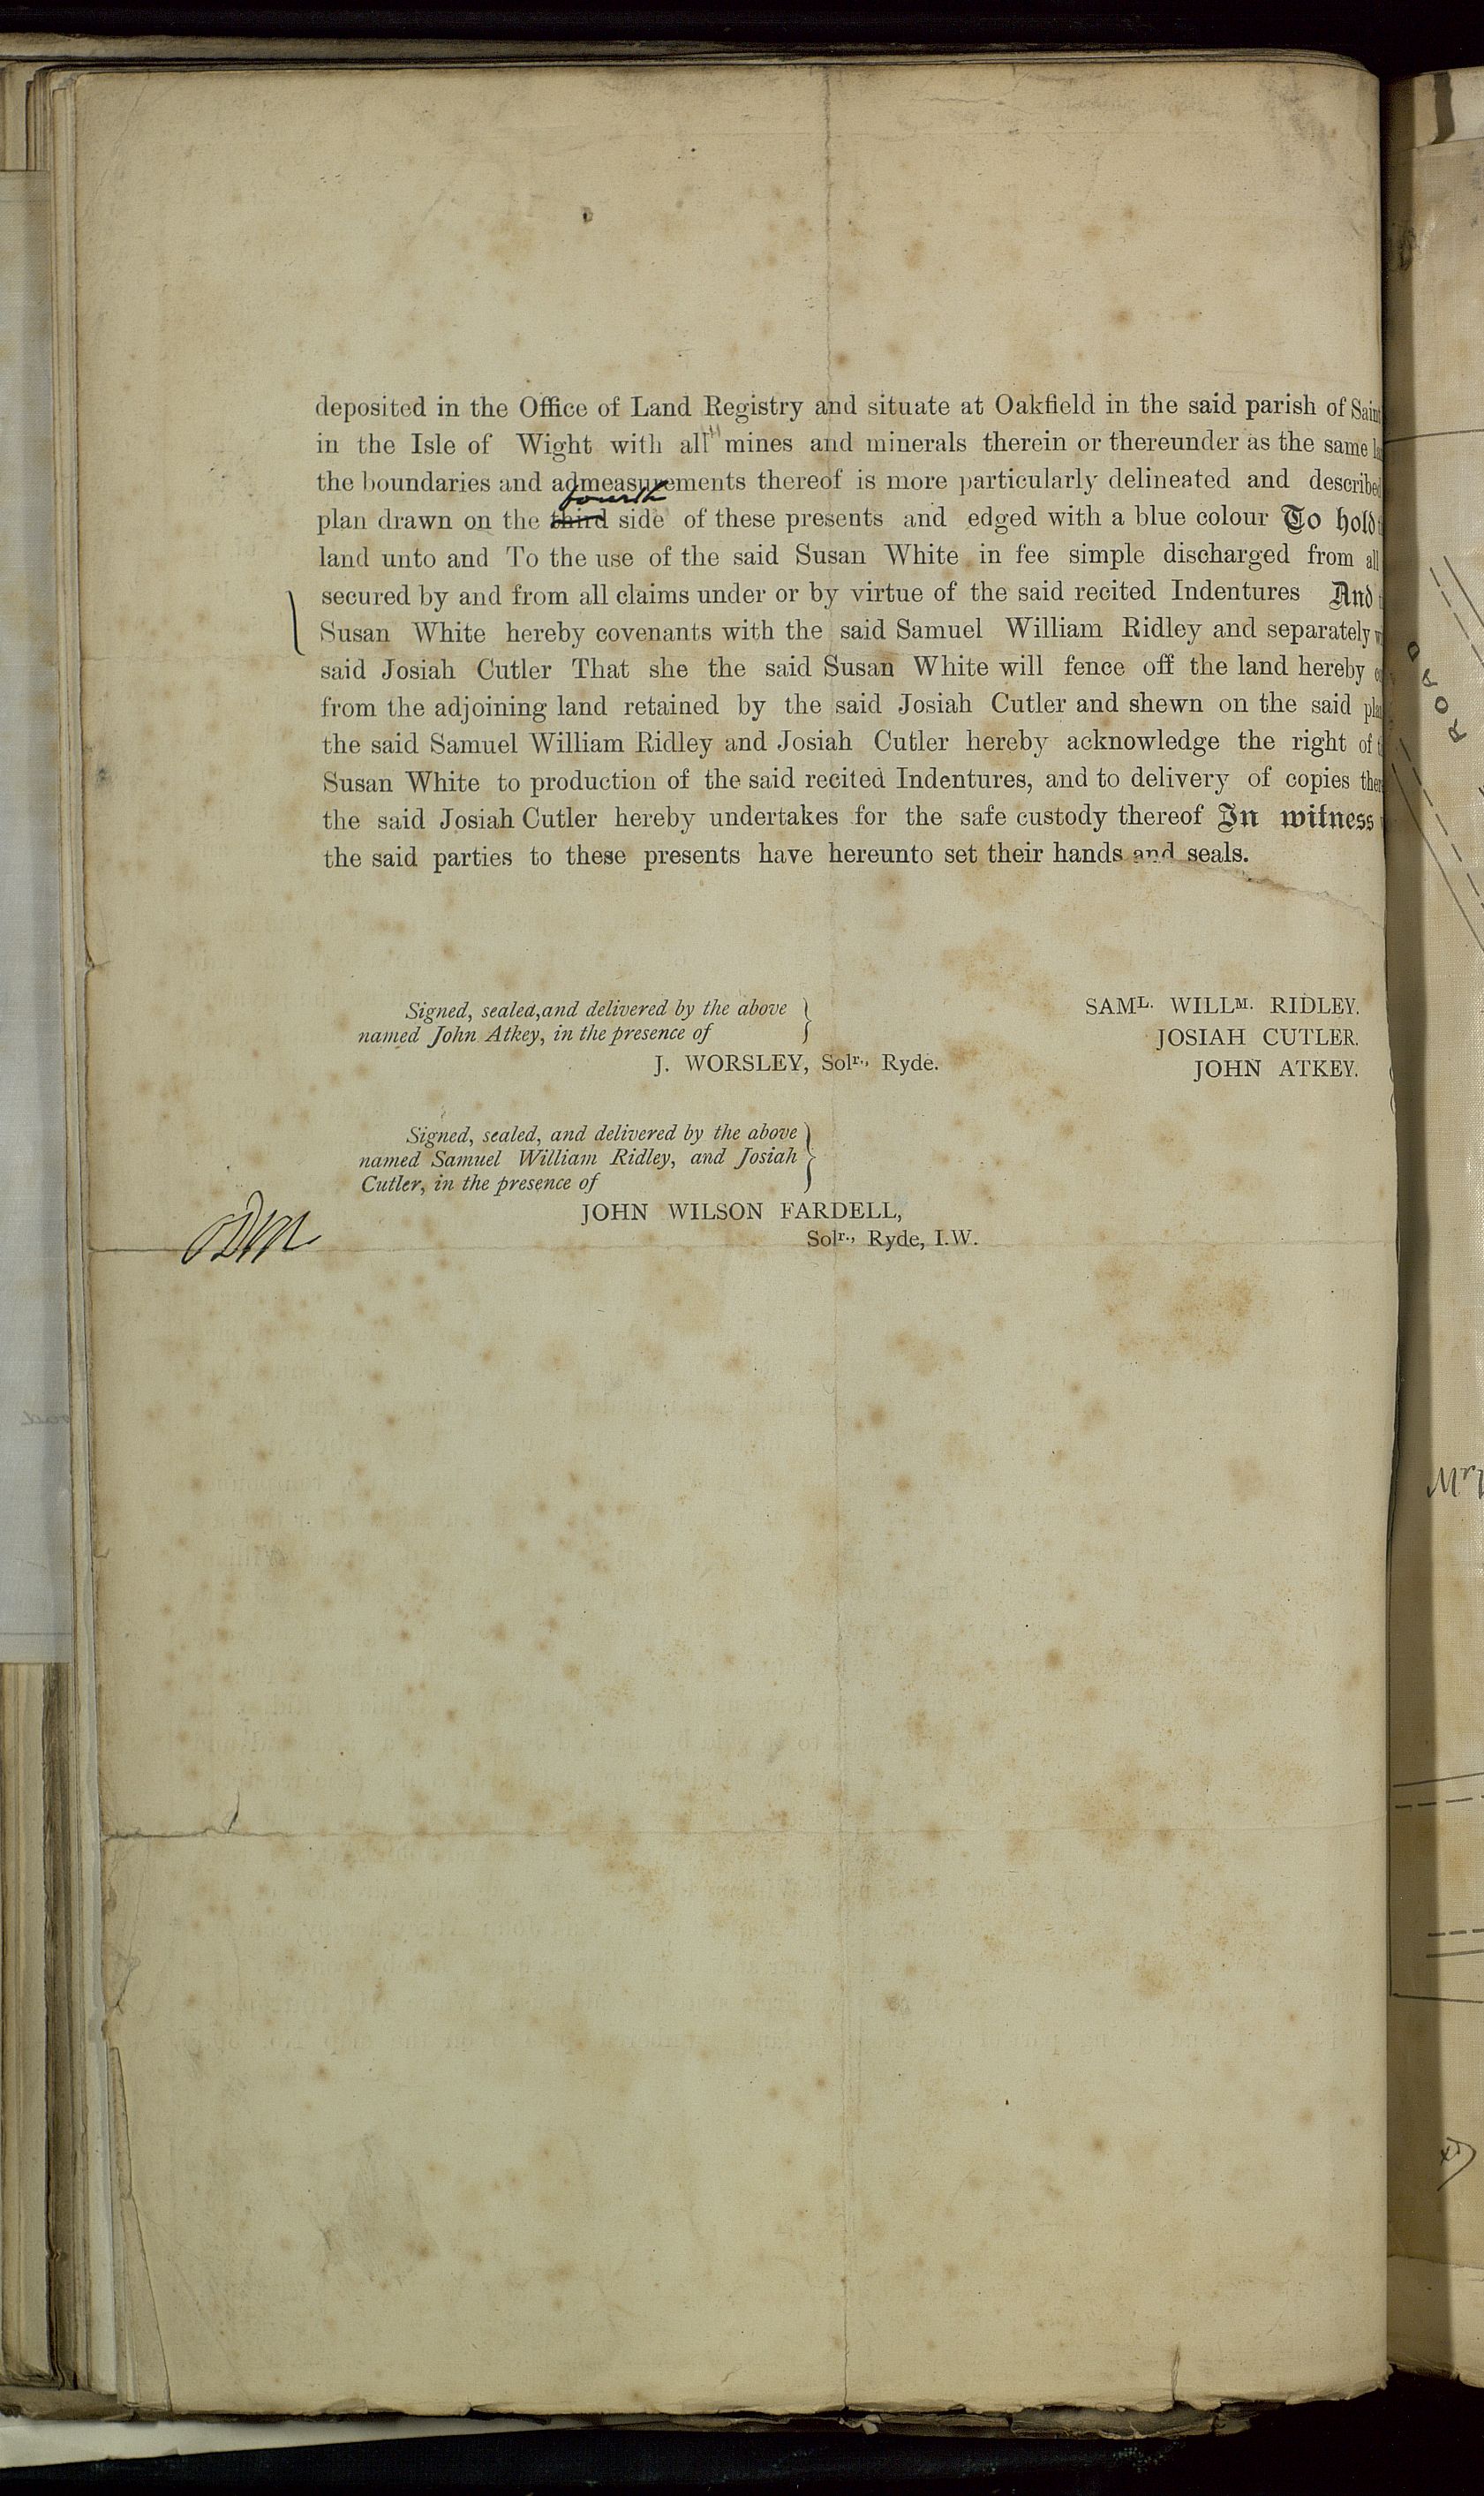 deposited in the Office of Land Registry and situate at Oakfield in the said parish of
in the Isle of Wight with all mines and minerals therein or thereunder as the same
the boundaries and admeasurements thereof is more particularly delineated and described
fourth
plan drawn on the third side of these presents and edged with a blue colour To hold
land unto and To the use of the said Susan White in fee simple discharged from all
secured by and from all claims under or by virtue of the said recited Indentures And
Susan White hereby covenants with the said Samuel William Ridley and separately
said Josiah Cutler That she the said Susan White will fence off the land hereby
from the adjoining land retained by the said Josiah Cutler and shewn on the said
the said Samuel William Ridley and Josiah Cutler hereby acknowledge the right of
Susan White to production of the said recited Indentures, and to delivery of copies
the said Josiah Cutler hereby undertakes for the safe custody thereof In witness
the said parties to these presents have hereunto set their hands and seals.
Signed, sealed, and delivered by the above
named John Atkey, in the presence of
J. WORSLEY, Solr., Ryde.
SAML. WILLM. RIDLEY.
JOSIAH CUTLER.
JOHN ATKEY.
Signed, sealed, and delivered by the above
named Samuel William Ridley, and Josiah
Cutler, in the presence of
JOHN WILSON FARDELL,
Solr., Ryde, I.W.
ROAD